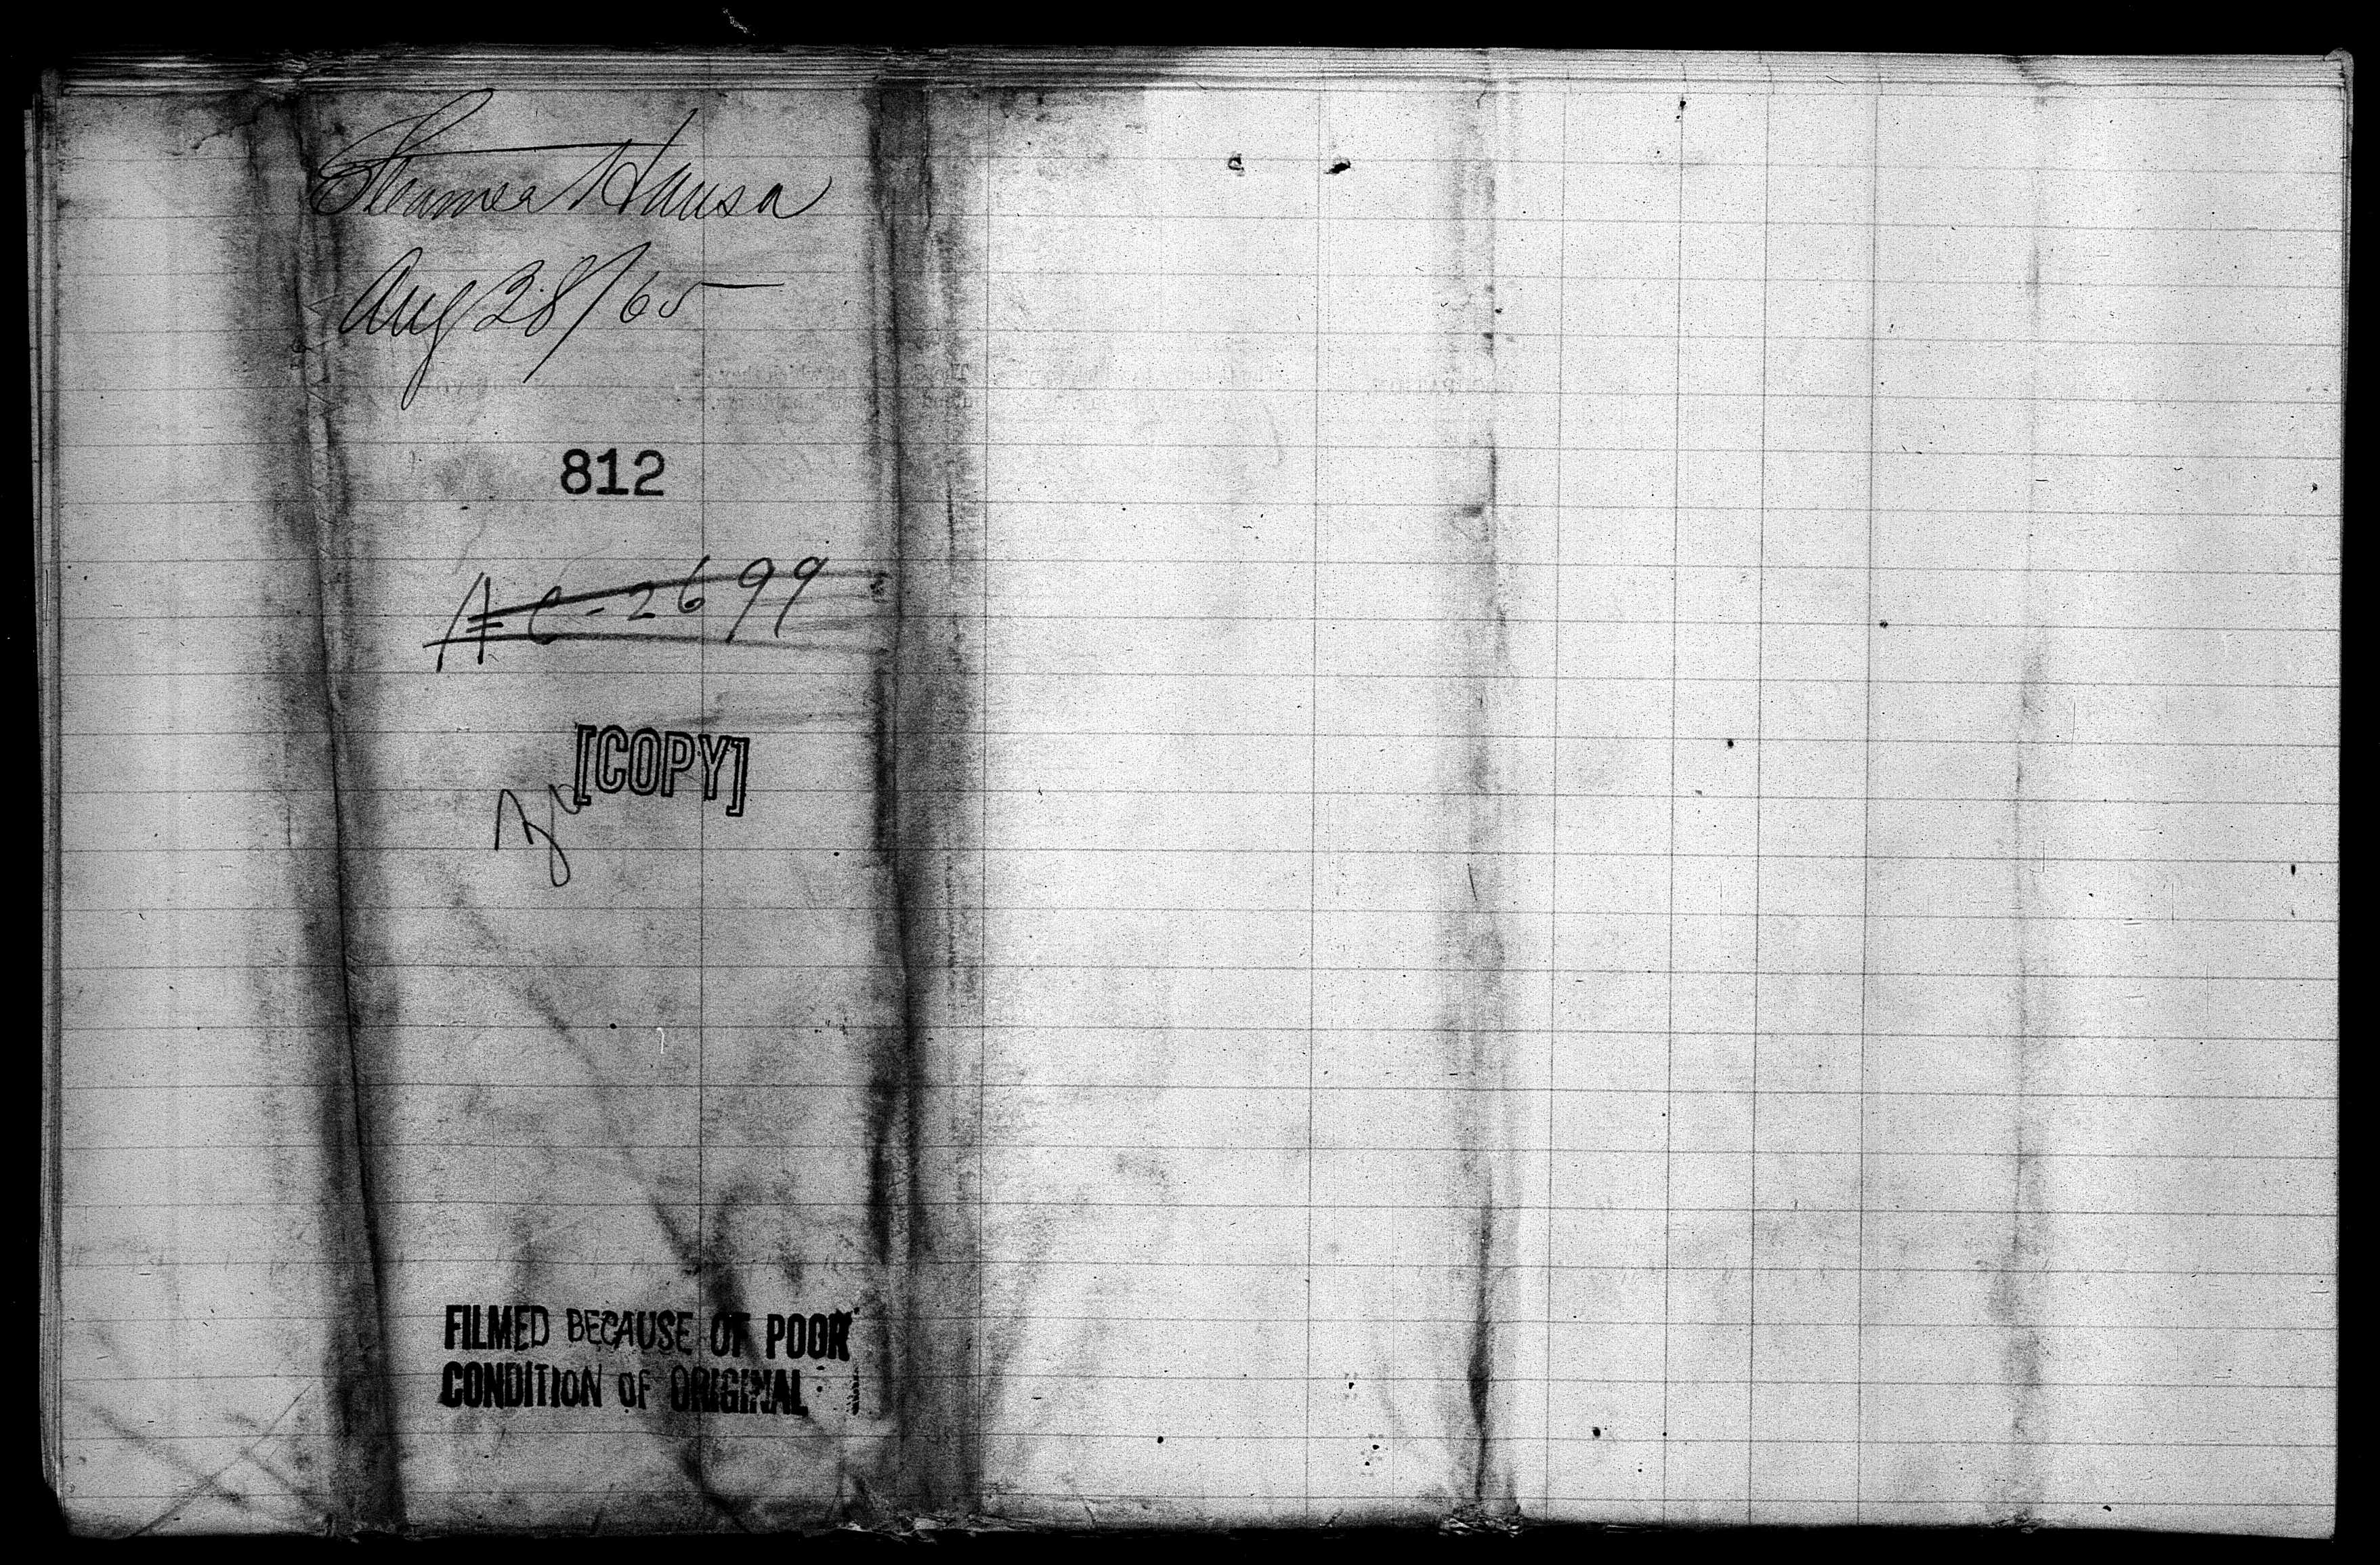 Steamer Hansa
Aug 28/65
812
A C-2699
[COPY]
FILMED BECAUSE OF POOR
CONDITION OF ORIGINAL